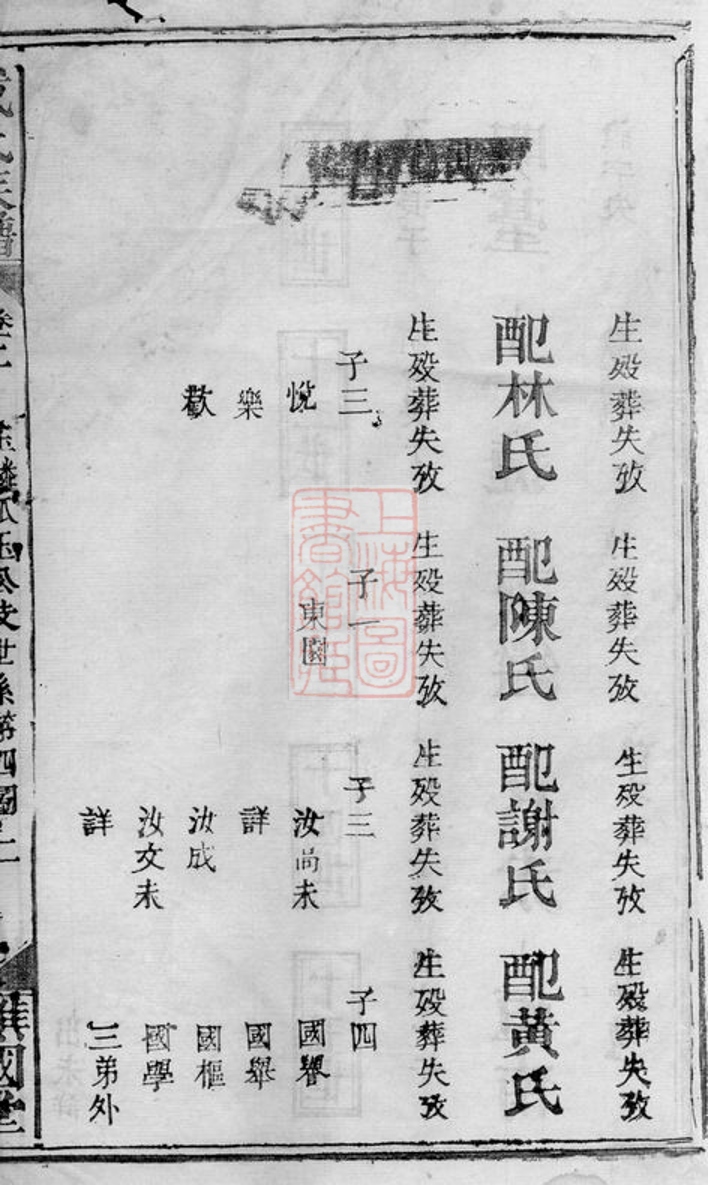 生殁葬失攷
配林氏
生殁葬失攷
子三
悅
樂
歡
生殁葬失攷
配陳氏
生殁葬失攷
子一
東園
生殁葬失攷
配謝氏
生殁葬失攷
子三
汝尚未
詳
汝成
汝文未
詳
生殁葬失攷
配黃氏
生殁葬失攷
子四
國譽
國舉
國樞
國學
三弟外
氏族譜
卷二
公支世系第四圖之二
國堂
上海圖
書館藏